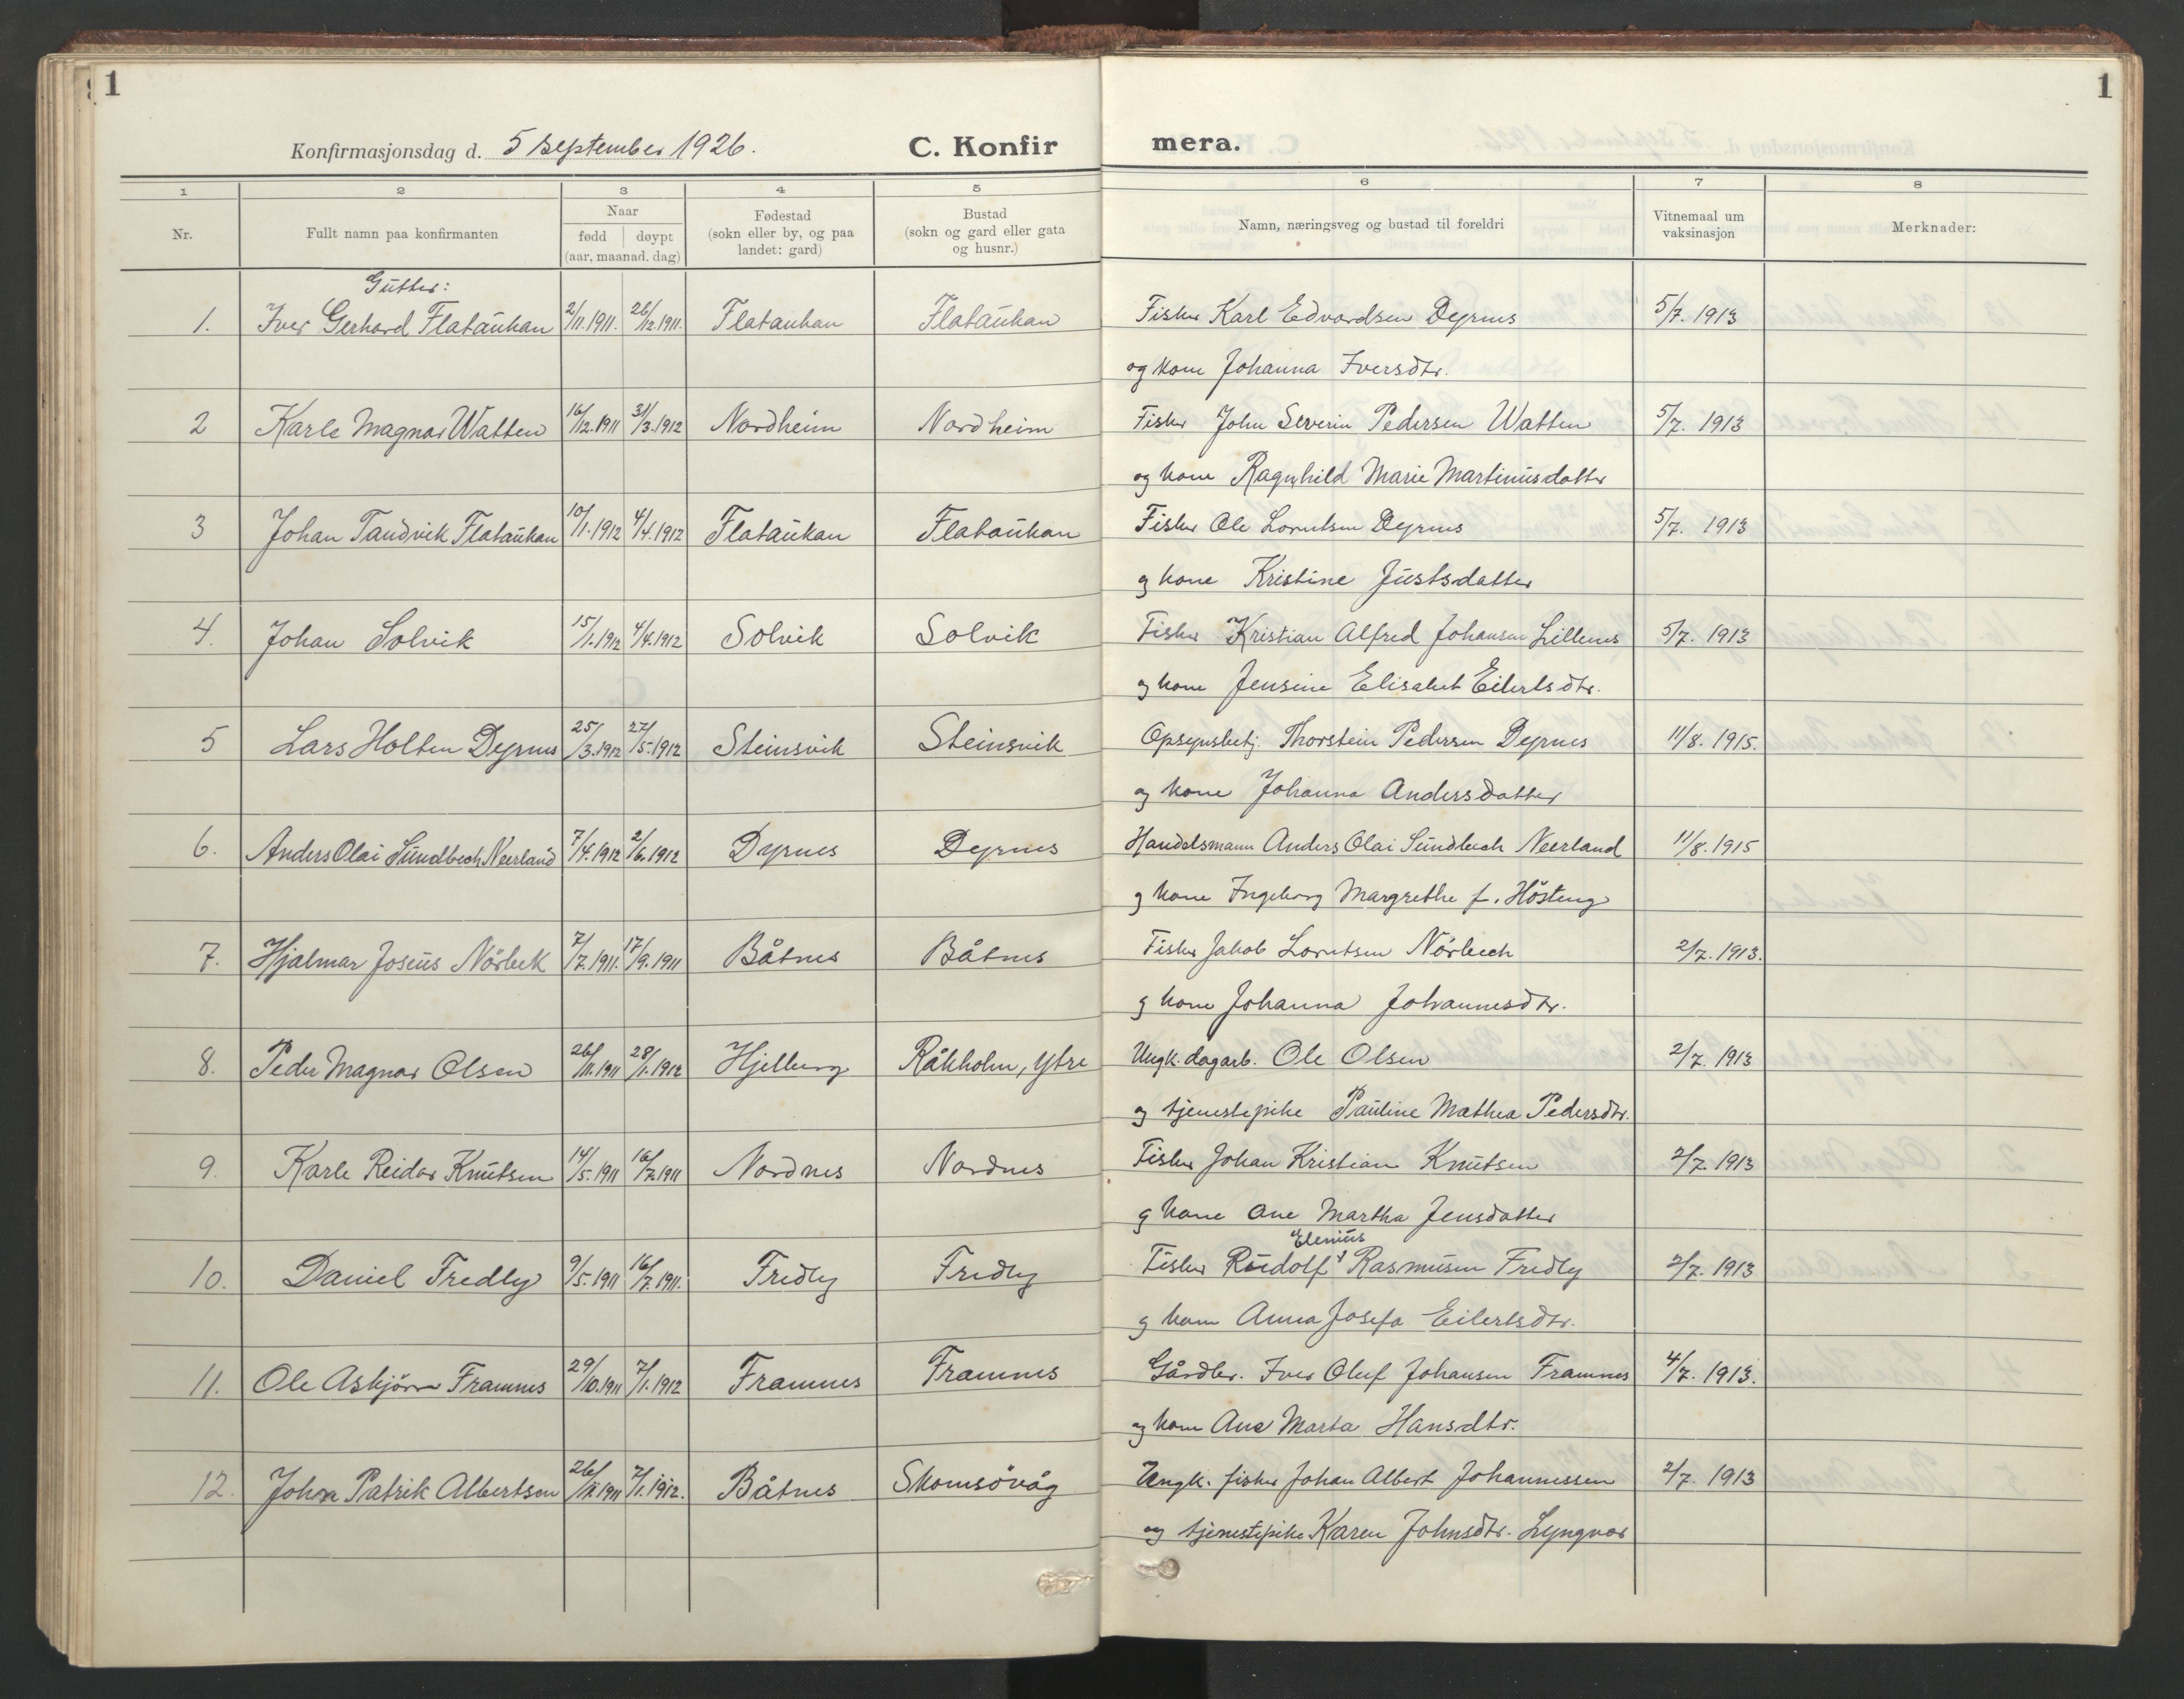 1
1
Konfirmasjonsdag d. 5 september 1926.
C. Konfir
mera.
1 2 3 4 5 6 7 8
Nr.
Fullt namn paa konfirmanten
Naar
født | døypt
(aar, maanad. dag)
Fødestad
(sokn eller by, og paa
landet: gard)
Bustad
(sokn og gard eller gata
og husnr.)
Namn, næringsveg og bustad til foreldri
Vitnemaal um
vaksinasjon
Merknader:
Gutter:
1. Iver Gerhard Flataukan 2/11.1911. 26/12.1911. Flataukan Flataukan Fisker Karl Edvardsen Dyrnes 5/7. 1913
og kone Johanna Iversdtr.
2 Karle Magnar Watten 16/12.1911 31/3.1912 Nordheim Nordheim Fisker John Severin Pedersen Watten 5/7. 1913
og kone Ragnhild Marie Martinusdatter
3 Johan Tandvik Flataukan 10/1.1912 4/4.1912 Flataukan Flataukan Fisker Ole Lorntsen Dyrnes 5/7. 1913
og kone Kristine Justsdatter
4. Johan Solvik 15/1.1912 4/4.1912 Solvik Solvik Fisker Kristian Alfred Johansen Lillenes 5/7. 1913
og kone Jensine Elisabet Eilertsdtr.
5 Lars Holten Dyrnes 25/3.1912 27/5.1912 Steinsvik Steinsvik Opsynsbetj. Thorstein Pedersen Dyrnes 11/8. 1915.
og kone Johanna Andersdatter
6. Anders Olai Sundbech Neerland 7/4.1912 2/6.1912 Dyrnes Dyrnes Handelsmann Anders Olai Sundbech Neerland 11/8. 1915
og kone Ingeborg Margrethe f. Hösteng
7. Hjalmar Joseus Nörbek 7/7.1911. 17/9.1911 Båtnes Båtnes Fisker Jakob Lorntsen Nörbech 2/7. 1913.
og kone Johanna Johannesdtr.
8. Peder Magnar Olsen 26/11.1911 28/1.1912 Hjelberg Råkholm, Ytre Ungk. dagarb. Ole Olsen 2/7. 1913
og tjenestepike Pauline Mathea Pedersdtr.
9. Karle Reidar Knutsen 14/5.1911 16/7.1911 Nordnes Nordnes Fisker Johan Kristian Knutsen 2/7. 1913
og kone Ane Martha Jensdatter
Elenius
10. Daniel Fredly 9/5.1911 16/7.1911. Fredly Fredly Fisker Rudolf Rasmusen Fredly 2/7. 1913
og kone Anna Josefa Eilertsdtr.
11. Ole Asbjörn Framnes 29/10.1911 7/1.1912 Framnes Framnes Gårdbr. Iver Oluf Johansen Framnes 4/7. 1913.
og kone Ane Marta Hansdtr.
12. John Patrik Albertsen 26/11.1911 7/1.1912. Båtnes Skomsövåg Ungk. fisker Johan Albert Johannessen 2/7. 1913
og tjenestepike Karen Johnsdtr. Lyngvær